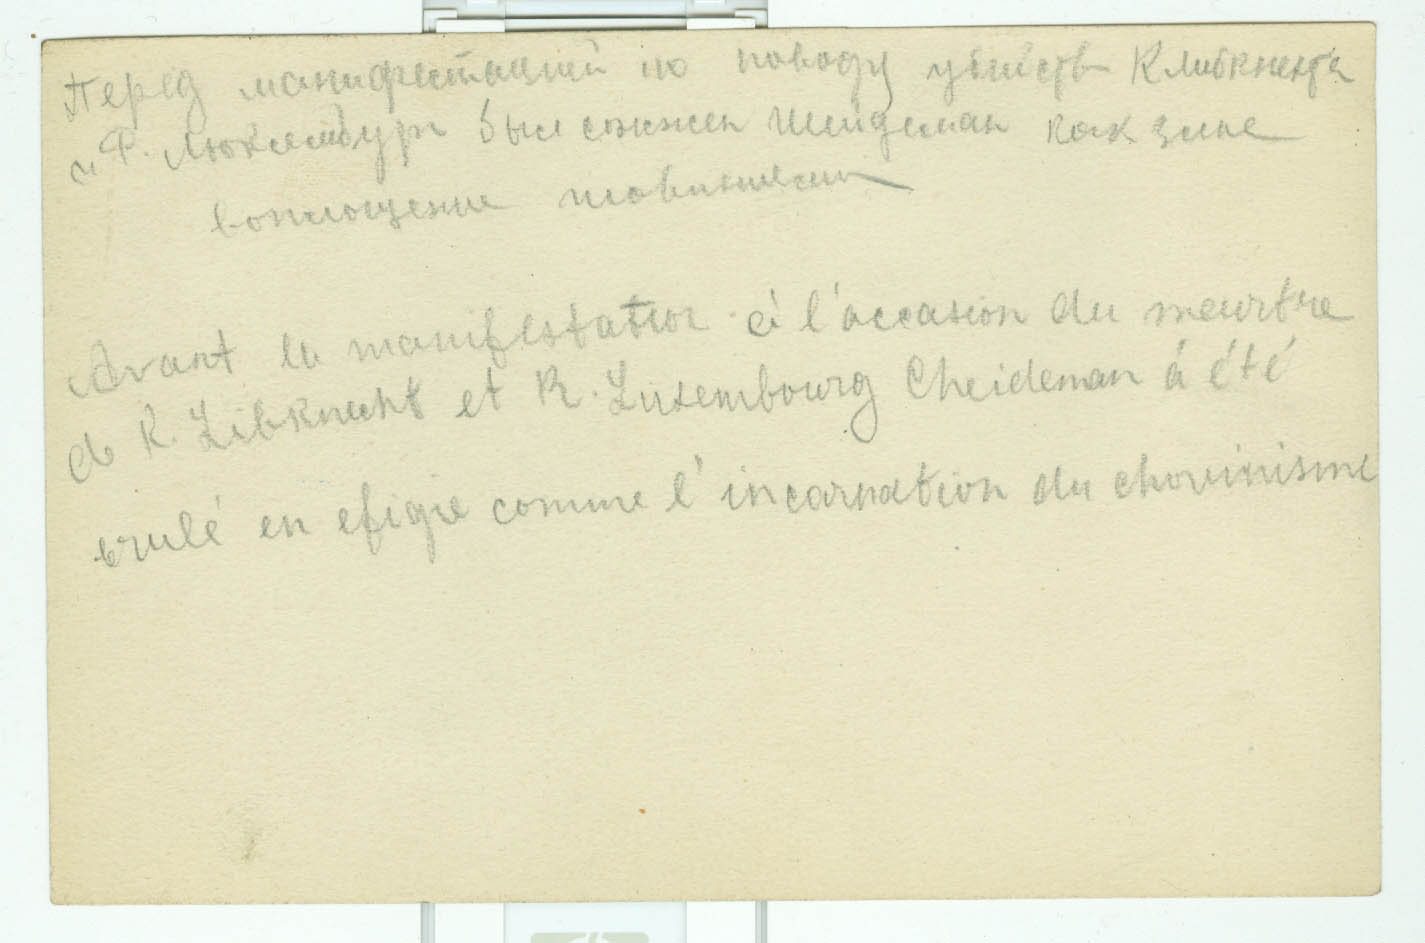 Перед манифестацией по поводу убийств К Либкнехта
и Ф. Люксембург был сожжен Шейдеман как злое
воплощение шовинизма
Avant la manifestation à l'accasion du meurtre
de K. Libknecht et R. Luxembourg Cheideman á été
brulé en efigie comme l'incarnation du chovinisme